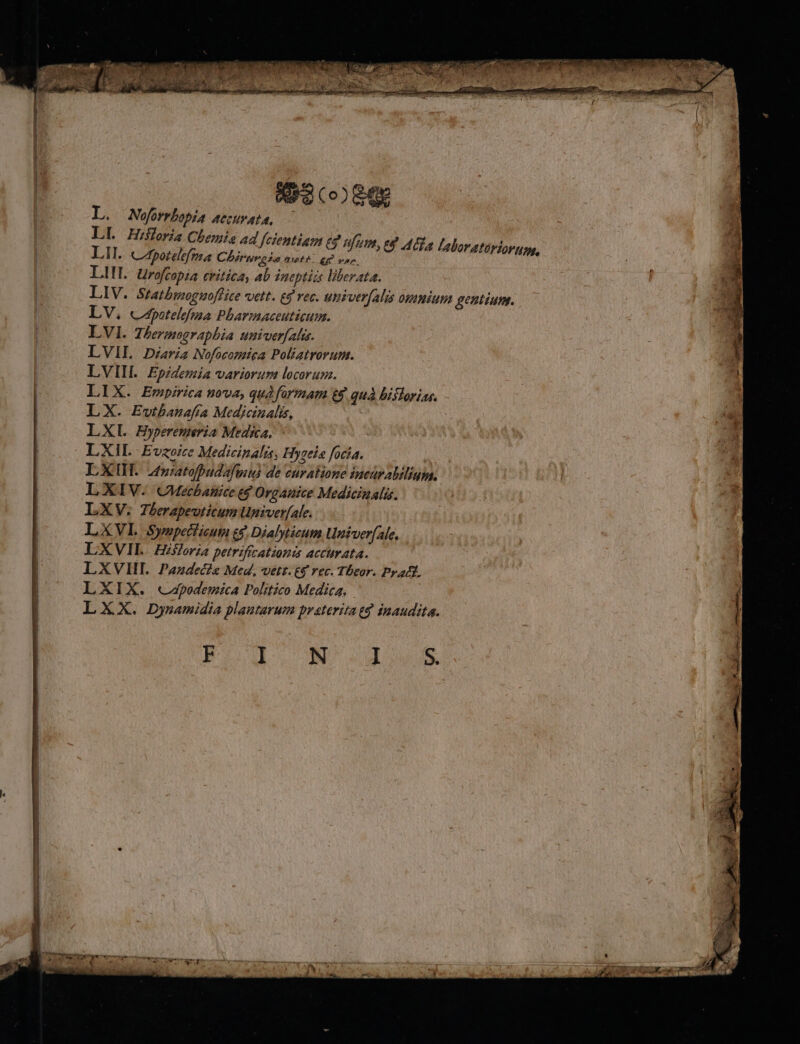 (o)
L. Noſorrhopia accurata,
LI. Hiſtoria Chemiæ ad ſcientiam & uſum, & Acta laboratoriorum.
LII. Apoteleſma Chirurgiæ vett. & rec.
LIII. Uroſcopia critica, ab ineptiis liberata.
LIV. Stathmognoſtice vett. & rec. univerſalis omnium gentium.
LV. Apoteleſma Pharmaceuticum.
LVI. Thermographia univerſalis.
LVII. Diaria Noſocomica Poliatrorum.
LVIII. Epidemia variorum locorum.
LIX. Empirica nova, quà formam & quà hiſtorias.
LX. Euthanaſia Medicinalis,
LXI. Hyperemeria Medica.
LXII. Evzoice Medicinalis, Hygeiæ ſocia.
LXIII. Aniatoſpudaſmus de curatione incurabilium.
LXIV. Mechanice & Organice Medicinalis.
LXV. Therapevticum Univerſale.
LXVI. Sympecticum & Dialyticum Univerſale.
LXVII. Hiſtoria petrificationis accurata.
LXVIII. Pandectæ Med. vett. & rec. Theor. Pract.
LXIX. Apodemica Politico Medica.
LXX. Dynamidia plantarum præterita & inaudita.
F I N I S.